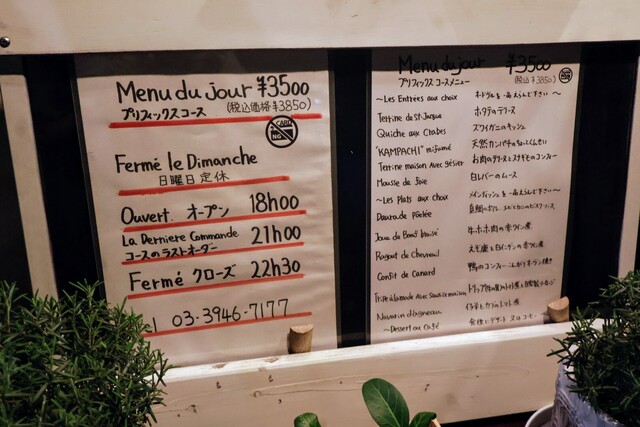 Menu du jour ¥3500
プリフィックスコース (税込価格¥3850)
CARD NG
Fermé le Dimanche
日曜日定休
Ouvert. オープン 18h00
La Derniere Commande 21h00
コースのラストオーダー
Fermé クローズ 22h30
03-3946-7177
Menu du jour ¥3500
プリフィックスコースメニュー (税込¥3850)
~Les Entrées aux choix
Terrine de St-Jaque ホタテのテリーヌ
Quiche aux Crabes ズワイガニのキッシュ
"KAMPACHI" mifumé 天然カンパチの
Terrine maison Avec gésier お肉のテリーヌと
Mousse de foie 白レバーのムース
~Les Plats aux choix
Daurade Pôelée
Joue de Bœuf braisé 牛ホホ肉の赤ワイン煮
Ragout de Chevreuil
Confit de Canard 鴨のコンフィ
Tripe à la mode Avec Saucisse maison
Navarin d'agneau
~Dessert ou Café